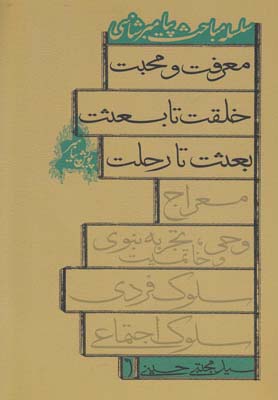 سلسله مباحث پیامبرشناسی
معرفت و محبت
خلقت تا بعثت
بعثت تا رحلت
معراج
وحی، تجربه نبوی
و خاتمیت
سلوک فردی
سلوک اجتماعی
سید مجتبی حسینی
۱